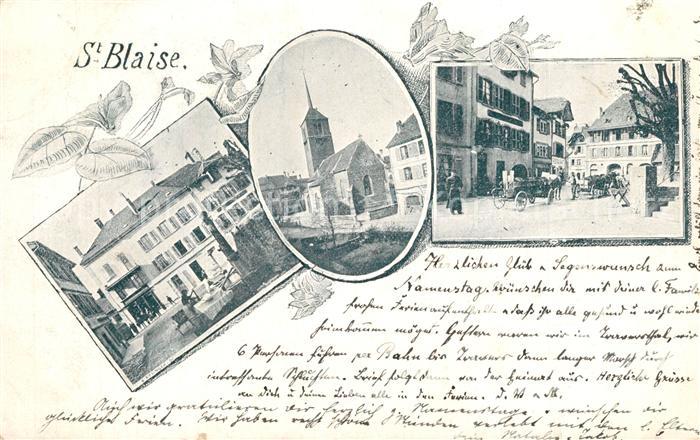 St Blaise.
Herzlichen Glük u Segenswunsch zum
Namenstag wünschen dir mit deiner l. Familie
frohen Ferienaufenthalt u daß ihr alle gesund u wohl wieder
heimkommen möget. Gestern waren wir im Traversthal, wir
6 Personen fuhren per Bahn bis Travers dann langer Marsch durch
interessante Schluchten. Brief folgt dann von der Heimat aus. Herzliche Grüsse
an dich u deine Lieben alle in den Ferien.
Auch wir gratulieren dir herzlich z. Namenstage u wünschen dir
glückliche Ferien. Wir haben recht schöne Stunden verlebt mit den l.